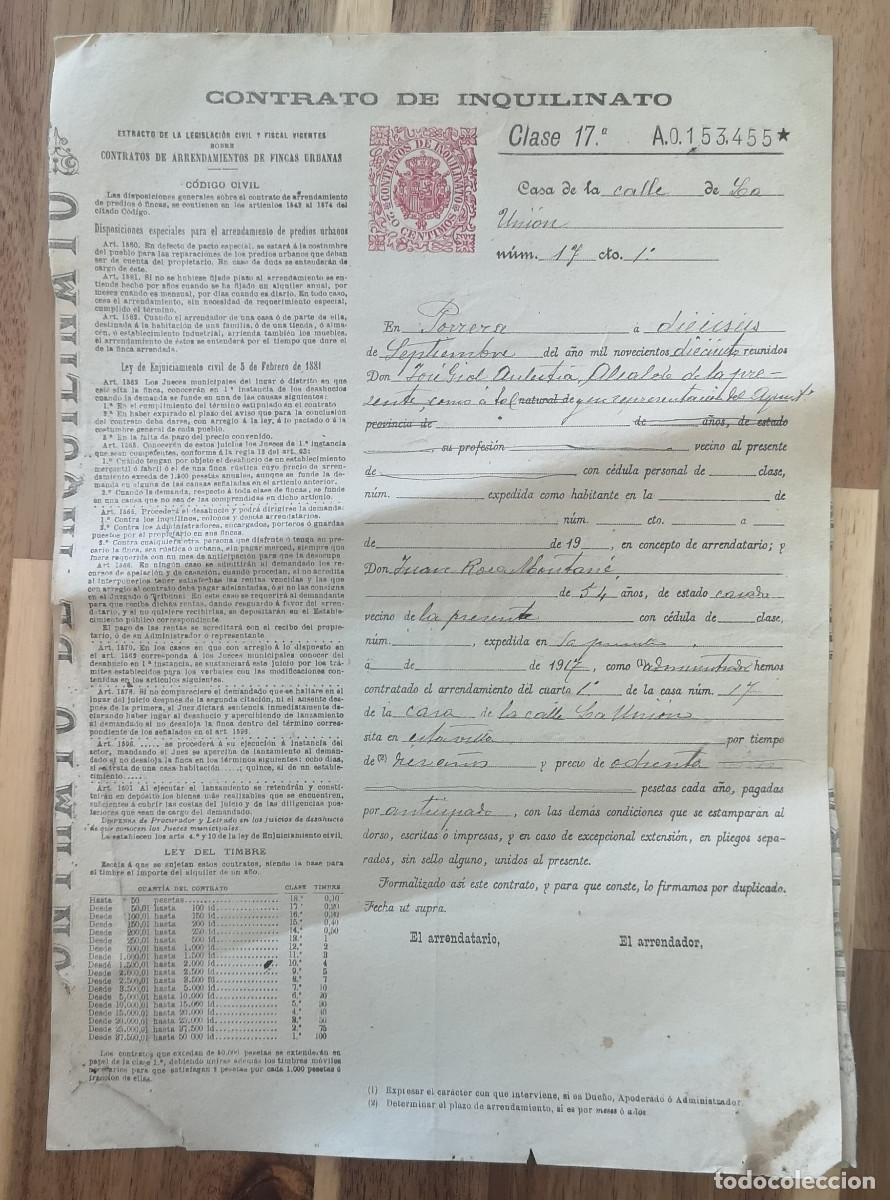 CONTRATO DE INQUILINATO
EXTRACTO DE LA LEGISLACIÓN CIVIL Y FISCAL VIGENTES
SOBRE
CONTRATOS DE ARRENDAMIENTOS DE FINCAS URBANAS
CÓDIGO CIVIL
Las disposiciones generales sobre el contrato de arrendamiento
de predios ó fincas, se contienen en los artículos 1542 al 1574 del
citado Código.
Disposiciones especiales para el arrendamiento de predios urbanos
Art. 1580. En defecto de pacto especial, se estará á la costumbre
del pueblo para las reparaciones de los predios urbanos que deban
ser de cuenta del propietario. En caso de duda se entenderán de
cargo de éste.
Art. 1581. Si no se hubiese fijado plazo al arrendamiento se en-
tiende hecho por años cuando se ha fijado un alquiler anual, por
meses cuando es mensual, por días cuando es diario. En todo caso,
cesa el arrendamiento, sin necesidad de requerimiento especial,
cumplido el término.
Art. 1582. Cuando el arrendador de una casa ó de parte de ella,
destinada á la habitación de una familia, ó de una tienda, ó alma-
cén, ó establecimiento industrial, arrienda también los muebles,
el arrendamiento de éstos se entenderá por el tiempo que dure el
de la finca arrendada.
Ley de Enjuiciamiento civil de 3 de Febrero de 1881
Art. 1562 Los Jueces municipales del lugar ó distrito en que
esté sita la finca, conocerán en 1.ª instancia de los desahucios
cuando la demanda se funde en una de las causas siguientes:
1.ª En el cumplimiento del término estipulado en el contrato.
2.ª En haber expirado el plazo del aviso que para la conclusión
del contrato deba darse, con arreglo á la ley, á lo pactado ó á la
costumbre general de cada pueblo.
3.ª En la falta de pago del precio convenido.
Art. 1563. Conocerán de estos juicios los Jueces de 1.ª instancia
que sean competentes, conforme á la regla 13 del art. 63:
1.º Cuando tengan por objeto el desahucio de un establecimiento
mercantil ó fabril ó el de una finca rústica cuyo precio de arren-
damiento exceda de 1.500 pesetas anuales, aunque se funde la de-
manda en alguna de las causas señaladas en el artículo anterior.
2.º Cuando la demanda, respecto á toda clase de fincas, se funde
en una causa que no sea de las comprendidas en dicho artículo.
Art. 1565. Procederá el desahucio y podrá dirigirse la demanda:
1.º Contra los inquilinos, colonos y demás arrendatarios.
2.º Contra los Administradores, encargados, porteros ó guardas
puestos por el propietario en sus fincas.
3.º Contra cualquiera otra persona que disfrute ó tenga en pre-
cario la finca, sea rústica ó urbana, sin pagar merced, siempre que
fuere requerida con un mes de anticipación para que la desocupe.
Art. 1566. En ningún caso se admitirán al demandado los re-
cursos de apelación y de casación, cuando procedan, si no acredita
al interponerlos tener satisfechas las rentas vencidas y las que
con arreglo al contrato deba pagar adelantadas, ó si no las consigna
en el Juzgado ó Tribunal. En este caso se requerirá al demandante
para que reciba dichas rentas, dando resguardo á favor del arren-
datario, y si no quisiere recibirlas, se depositarán en el Estable-
cimiento público correspondiente.
El pago de las rentas se acreditará con el recibo del propie-
tario, ó de su Administrador ó representante.
Art. 1570. En los casos en que con arreglo á lo dispuesto en
el art. 1562 corresponda á los Jueces municipales conocer del
desahucio en 1.ª instancia, se sustanciará este juicio por los trá-
mites establecidos para los verbales con las modificaciones con-
tenidas en los artículos siguientes.
Art. 1578. Si no compareciere el demandado que se hallare en el
lugar del juicio después de la segunda citación, ni el ausente des-
pués de la primera, el Juez dictará sentencia inmediatamente de-
clarando haber lugar al desahucio y apercibiendo de lanzamiento
al demandado si no desaloja la finca dentro del término correspon-
diente de los señalados en el art. 1596.
Art. 1596. ..... se procederá á su ejecución á instancia del
actor, mandando el Juez se aperciba de lanzamiento al deman-
dado si no desaloja la finca en los términos siguientes: ocho días,
si se trata de una casa habitación .....; quince, si de un estable-
cimiento.....
Art. 1601 Al ejecutar el lanzamiento se retendrán y consti-
tuirán en depósito los bienes más realizables que se encuentren,
suficientes á cubrir las costas del juicio y de las diligencias pos-
teriores que sean de cargo del demandado.
Dispensa de Procurador y Letrado en los juicios de desahucio
de que conocen los Jueces municipales.
La establecen los arts. 4.º y 10 de la ley de Enjuiciamiento civil.
LEY DEL TIMBRE
Escala á que se sujetan estos contratos, siendo la base para
el timbre el importe del alquiler de un año.
CUANTÍA DEL CONTRATO CLASE TIMBRE
Hasta 50 pesetas 18.ª 0,10
Desde 50,01 hasta 100 id. 17.ª 0,20
Desde 100,01 hasta 150 id. 16.ª 0,30
Desde 150,01 hasta 200 id. 15.ª 0,40
Desde 200,01 hasta 250 id. 14.ª 0,50
Desde 250,01 hasta 500 id. 13.ª 1
Desde 500,01 hasta 1.000 id. 12.ª 2
Desde 1.000,01 hasta 1.500 id. 11.ª 3
Desde 1.500,01 hasta 2.000 id. 10.ª 4
Desde 2.000,01 hasta 2.500 id. 9.ª 5
Desde 2.500,01 hasta 3.500 id. 8.ª 7
Desde 3.500,01 hasta 5.000 id. 7.ª 10
Desde 5.000,01 hasta 10.000 id. 6.ª 20
Desde 10.000,01 hasta 15.000 id. 5.ª 30
Desde 15.000,01 hasta 20.000 id. 4.ª 40
Desde 20.000,01 hasta 25.000 id. 3.ª 50
Desde 25.000,01 hasta 37.500 id. 2.ª 75
Desde 37.500,01 hasta 50.000 id. 1.ª 100
Los contratos que excedan de 50.000 pesetas se extenderán en
papel de la clase 1.ª, debiendo unirse además los timbres móviles
necesarios para que satisfagan 2 pesetas por cada 1.000 pesetas ó
fracción de ellas.
CONTRATOS DE INQUILINATO
20 CENTIMOS
Clase 17.ª A.0.153.455★
Casa de la calle de La
Unión
núm. 17 cto. 1.º
En Porrera á dieciseis
de Septiembre del año mil novecientos diecisiete reunidos
Don José Giol Auletia, Alcalde de la pre-
sente, como á tal natural de y en representación del Ayunt.º
provincia de de años, de estado
, su profesión vecino al presente
de con cédula personal de clase,
núm. expedida como habitante en la de
núm. cto. á
de de 19 , en concepto de arrendatario; y
Don Juan Roca Montané,
de 54 años, de estado casado
vecino de la presente con cédula de clase,
núm. , expedida en la presente,
á de de 1917, como administrador hemos
contratado el arrendamiento del cuarto 1.º de la casa núm. 17
de la casa de la calle La Unión
sita en esta villa por tiempo
de (2) tres anos y precio de ochenta
pesetas cada año, pagadas
por anticipado, con las demás condiciones que se estamparán al
dorso, escritas ó impresas, y en caso de excepcional extensión, en pliegos sepa-
rados, sin sello alguno, unidos al presente.
Formalizado así este contrato, y para que conste, lo firmamos por duplicado.
Fecha ut supra.
El arrendatario, El arrendador,
(1) Expresar el carácter con que interviene, si es Dueño, Apoderado ó Administrador.
(2) Determinar el plazo de arrendamiento, si es por meses ó años
todocoleccion